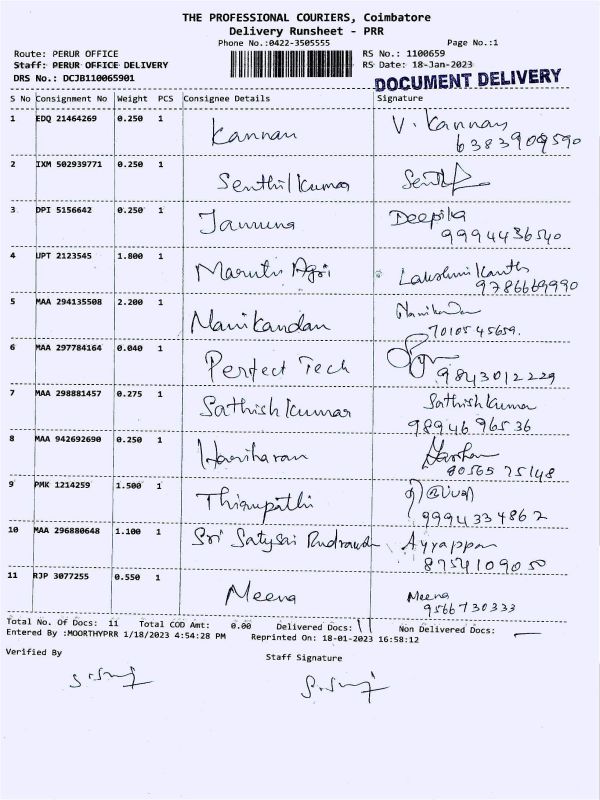 THE PROFESSIONAL COURIERS, Coimbatore
Delivery Runsheet - PRR
Phone No.:0422-3505555
Page No.:1
Route: PERUR OFFICE
RS No.: 1100659
Staff: PERUR OFFICE DELIVERY
RS Date: 18-Jan-2023
DRS No.: DCJB110065901
DOCUMENT DELIVERY
S No Consignment No Weight PCS Consignee Details Signature
1 EDQ 21464269 0.250 1 Kannan V. Kannan
6383909590
2 IXM 502939771 0.250 1 Senthilkumar
3 DPI 5156642 0.250 1 Jamuna Deepika
9994436540
4 UPT 2123545 1.800 1 Maruti Agri Lakshmi Kanth
9786669990
5 MAA 294135508 2.200 1 Manikandan
7010545659.
6 MAA 297784164 0.040 1 Perfect Tech
9843012229
7 MAA 298881457 0.275 1 Sathish kumar Sathish kumar
9894696536
8 MAA 942692690 0.250 1 Hariharan
80565 75148
9 PMK 1214259 1.500 1 Thirupathi
9994334862
10 MAA 296880648 1.100 1 Sri Satysai Ayyappan
8754109050
11 RJP 3077255 0.550 1 Meena Meena
9566730333
Total No. Of Docs: 11 Total COD Amt: 0.00 Delivered Docs: 11 Non Delivered Docs: —
Entered By :MOORTHYPRR 1/18/2023 4:54:28 PM Reprinted On: 18-01-2023 16:58:12
Verified By
Staff Signature